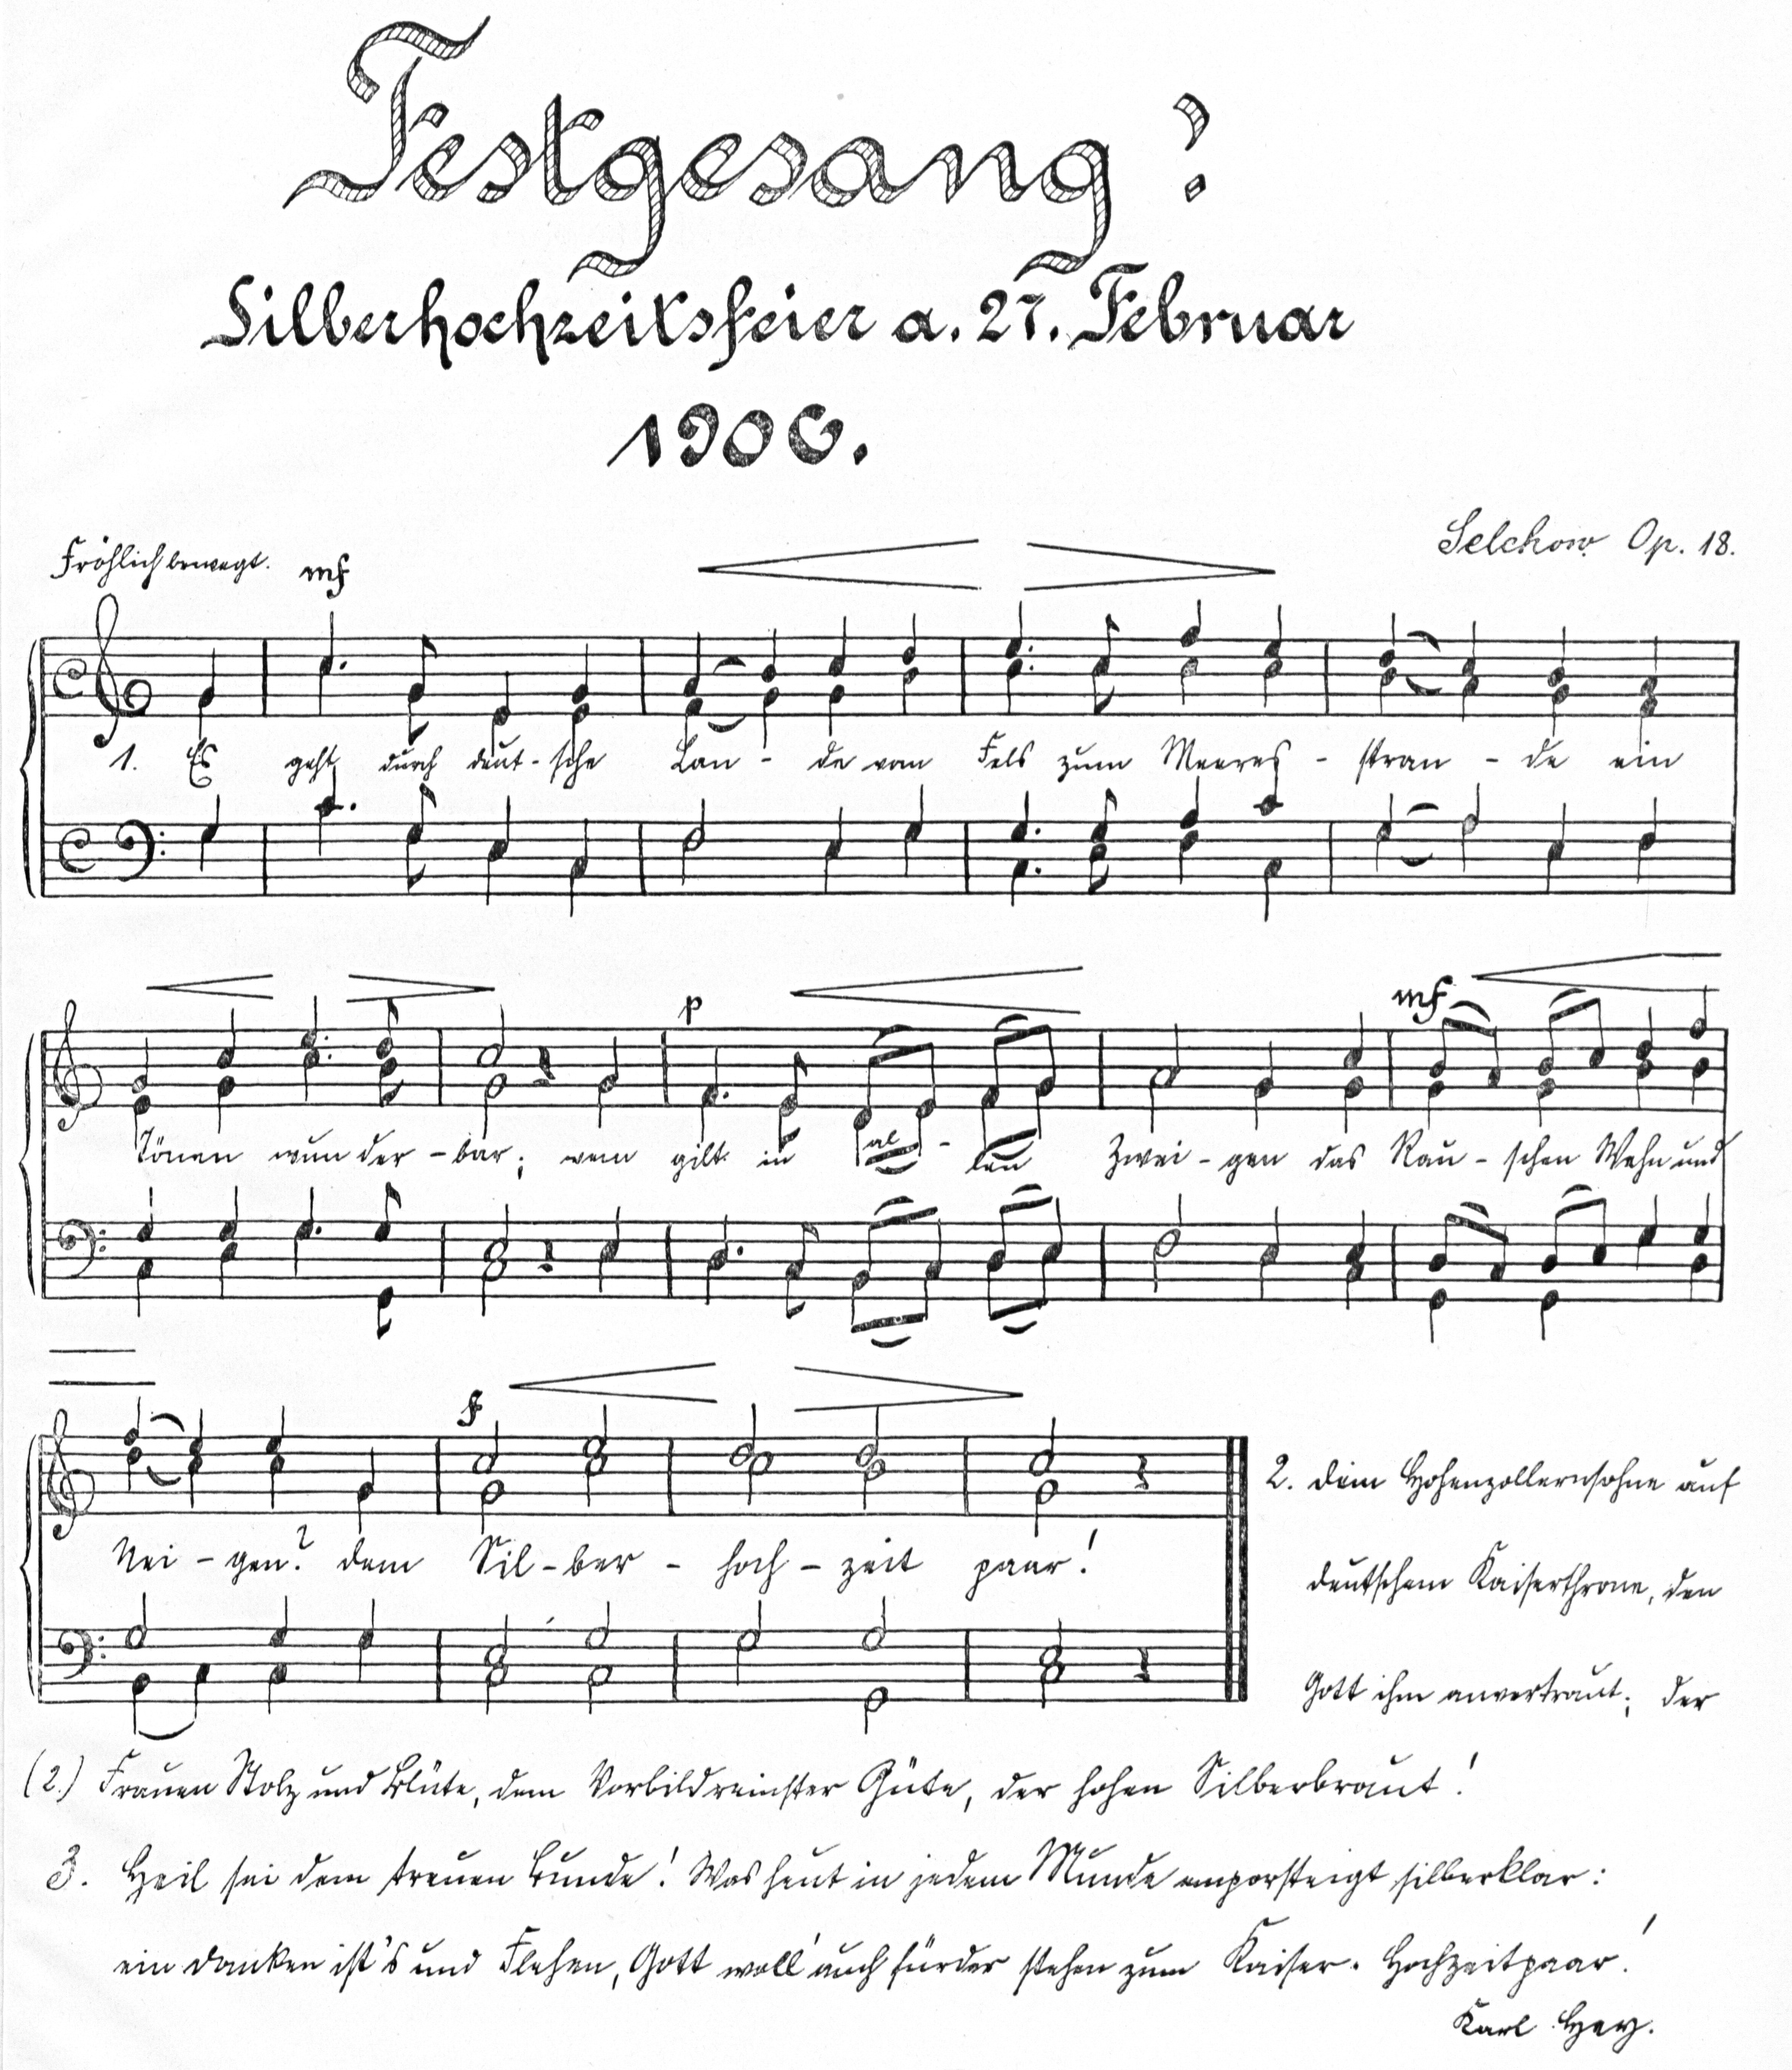 Festgesang!
Silberhochzeitsfeier a. 27. Februar
1906.
Selchow Op. 18.
Fröhlich bewegt. mf
1. Es geht durch deut-sche Lan - de vom Fels zum Meeres - stran - de ein
p mf
Tönen wun der - bar; wem gilt in al - len Zwei - gen das Rau - schen Wehn und
f
Nei - gen? dem Sil - ber - hoch - zeit paar!
2. dem Hohenzollernsohne auf
deutschem Kaiserthrone, den
Gott ihm anvertraut; der
(2.) Frauen Stolz und Blüte, dem Vorbild reinster Güte, der hohen Silberbraut!
3. Heil sei dem treuen Bunde! Was heut in jedem Munde emporsteigt silberklar:
ein danken ist's und Flehen, Gott woll' auch fürder stehen zum Kaiser-Hochzeitpaar!
Karl Hey.